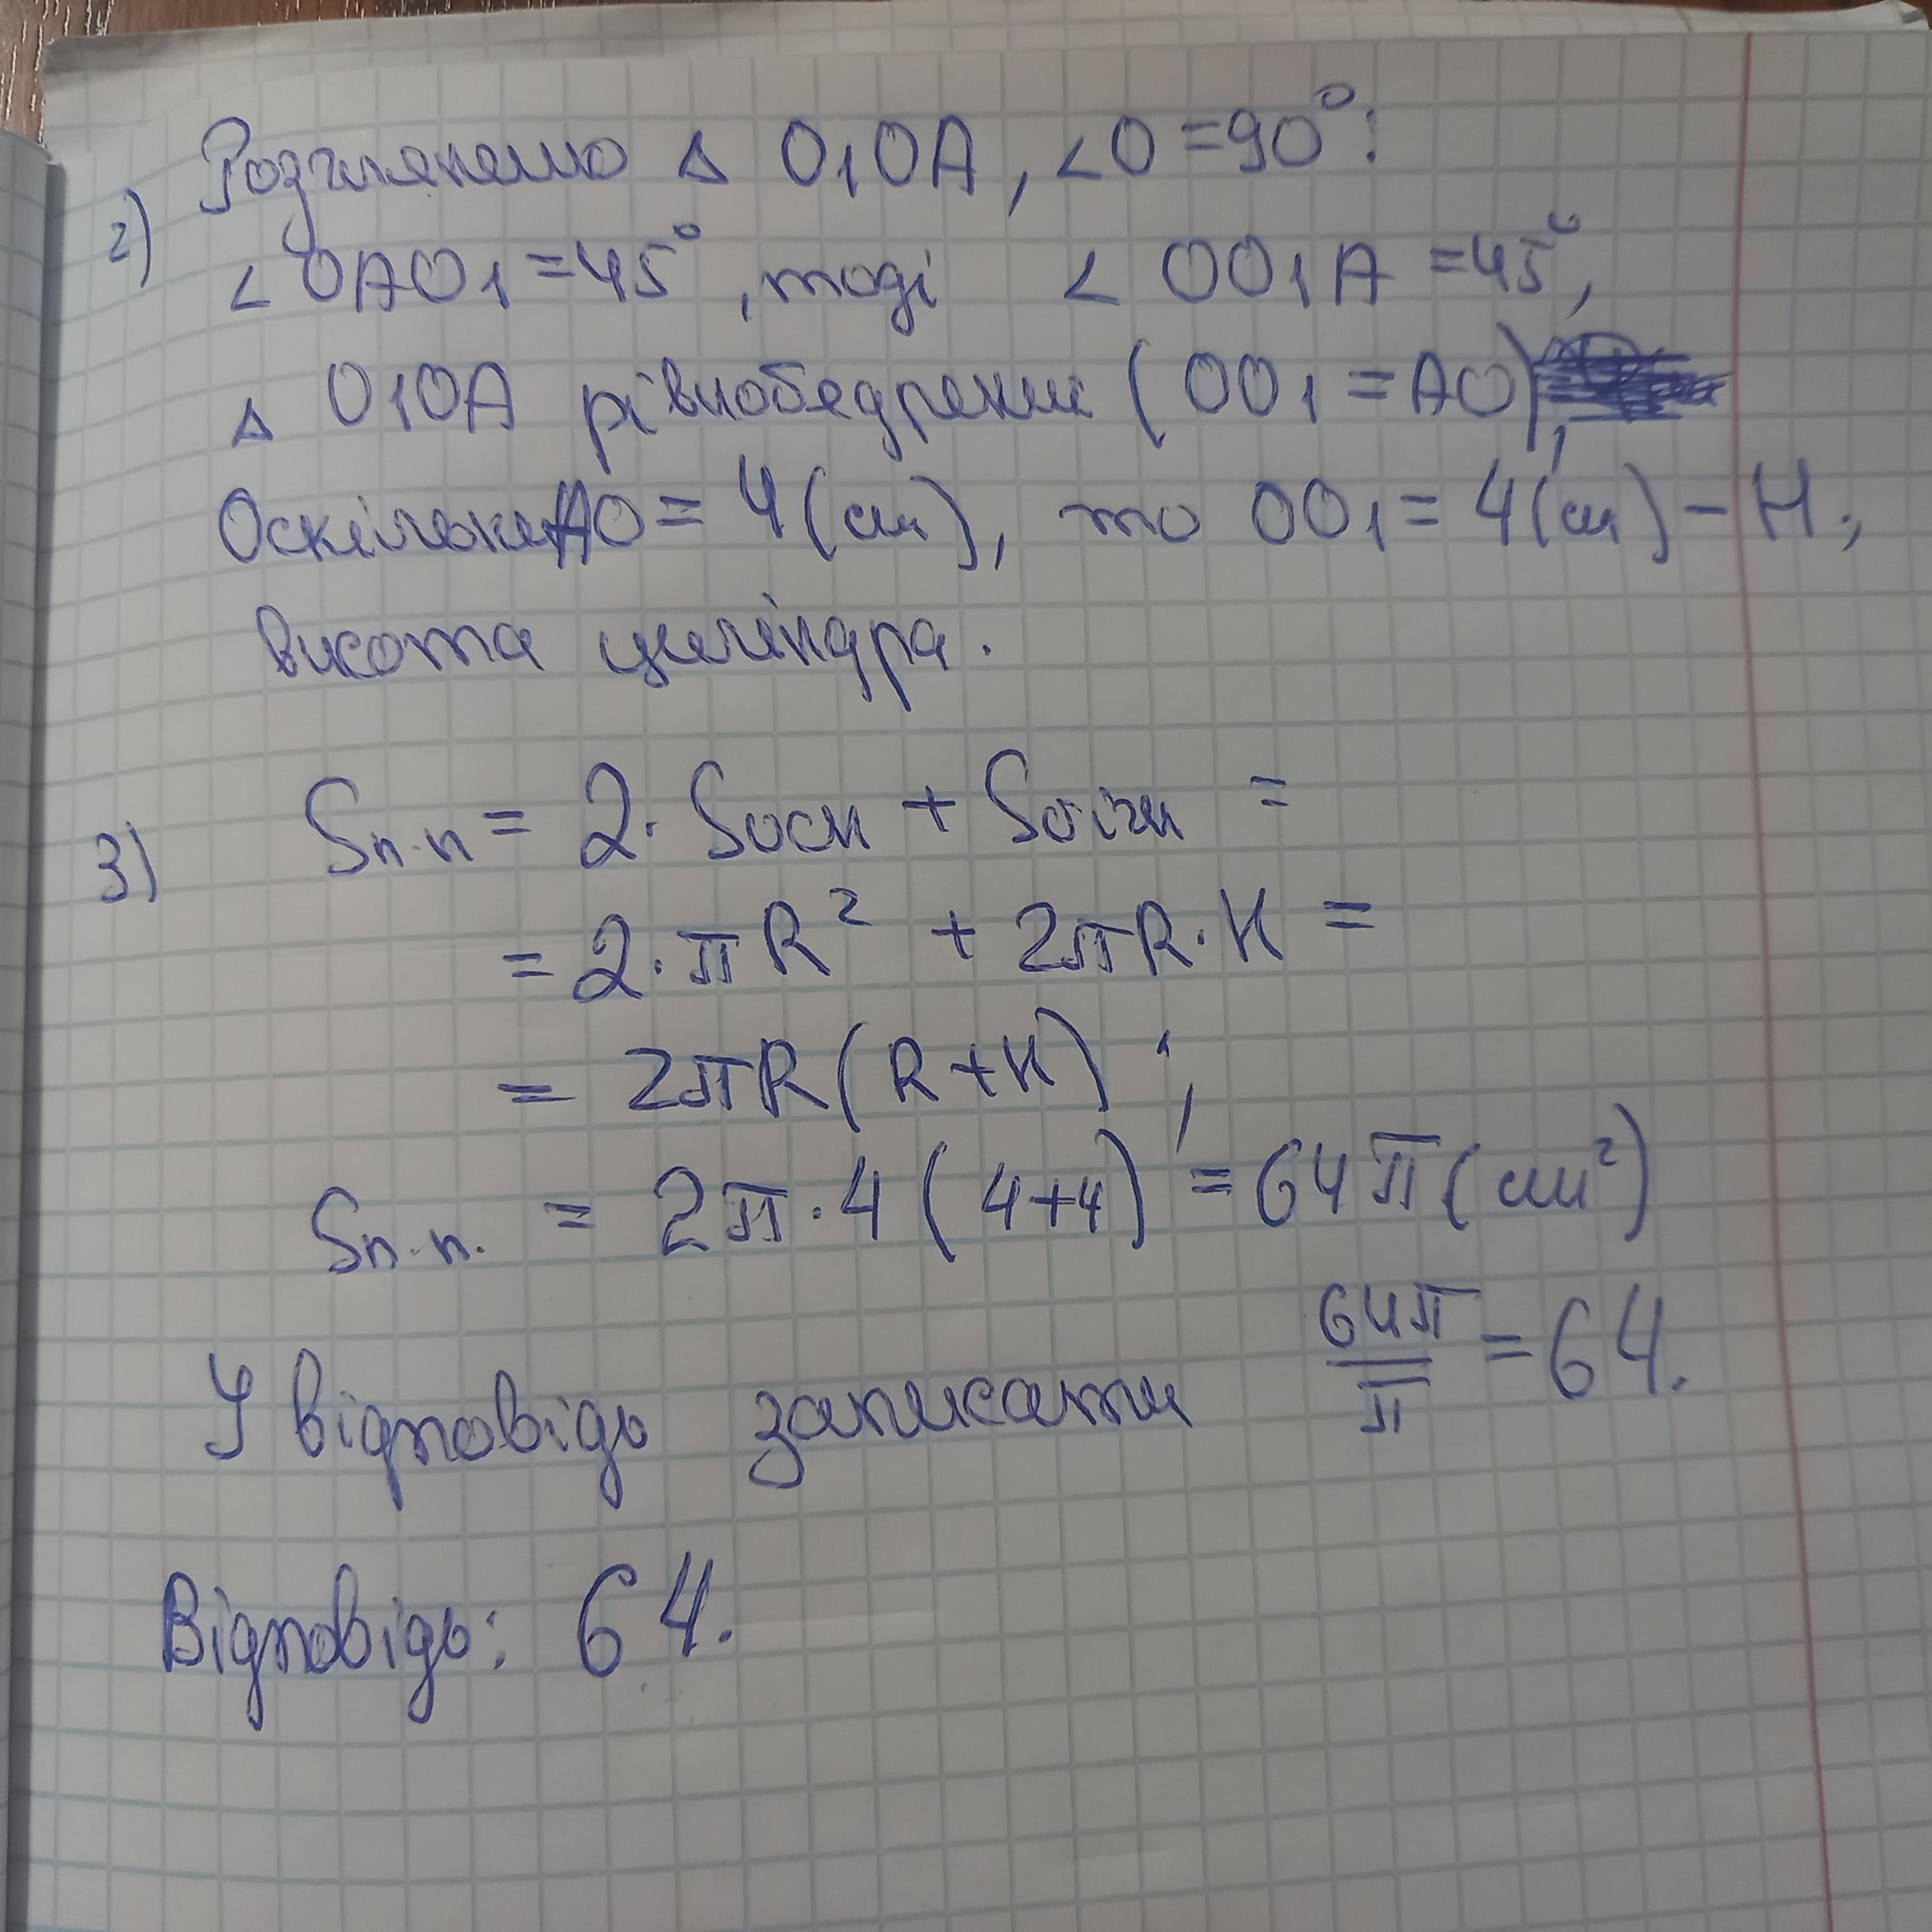 Розглянемо Δ O₁OA, ∠O = 90°:
2) ∠OAO₁ = 45°, тоді ∠OO₁A = 45°,
Δ O₁OA рівнобедрений (OO₁ = AO),
Оскільки AO = 4 (см), то OO₁ = 4 (см) – H;
висота циліндра.
3) Sп.п = 2·Sосн + Sбічн =
= 2·πR² + 2πR·H =
= 2πR(R+H);
Sп.п. = 2π·4(4+4) = 64π (см²)
У відповідь записати 64π/π = 64.
Відповідь: 64.